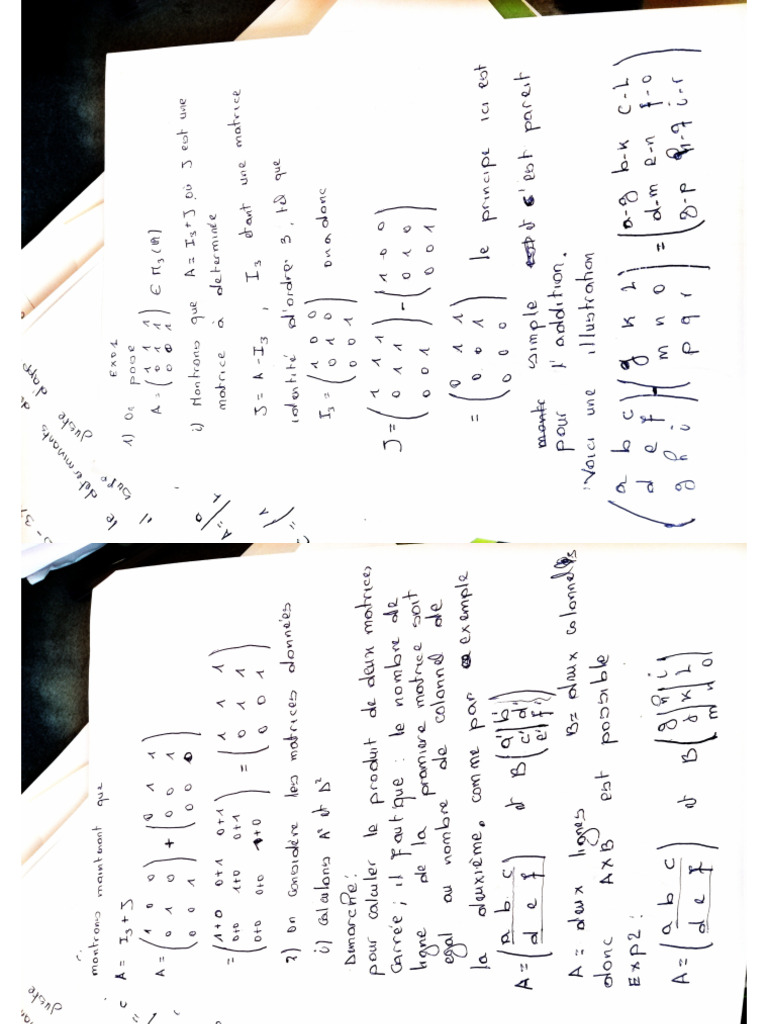 EXO1
1) On pose
A = ( 1 1 1
0 1 1
0 0 1 ) ∈ M₃(IR)
i) Montrons que A = I₃+J, où J est une
matrice à determinée
J = A - I₃, I₃ étant une matrice
identité d'ordre 3, tel que
I₃ = ( 1 0 0
0 1 0
0 0 1 ) on a donc
J = ( 1 1 1
0 1 1
0 0 1 ) - ( 1 0 0
0 1 0
0 0 1 )
= ( 0 1 1
0 0 1
0 0 0 ) le principe ici est
simple s'est pareit
pour l'addition.
Voici une illustration
( a b c
d e f
g h i ) - ( g k l
m n o
p q r ) = ( a-g b-k c-l
d-m e-n f-o
g-p h-q i-r )
montrons maintenant que
A = I₃ + J
A = ( 1 0 0
0 1 0
0 0 1 ) + ( 0 1 1
0 0 1
0 0 0 )
= ( 1+0 0+1 0+1
0+0 1+0 0+1
0+0 0+0 1+0 ) = ( 1 1 1
0 1 1
0 0 1 )
2) On considère les matrices données
i) calculons A² et D²
Dmarche:
pour calculer le produit de deux matrices
carrée; il faut que: le nombre de
ligne de la premiere matrice soit
egal au nombre de colonnel de
la deuxième. comme par exemple
A = ( a b c
d e f ) et B ( a' b'
c' d'
e' f' )
A = deux lignes B = deux colonnels
donc AxB est possible
EXP2:
A = ( a b c
d e f ) et B ( g h i
j k l
m n o )
le determinants
juste d'app
juste